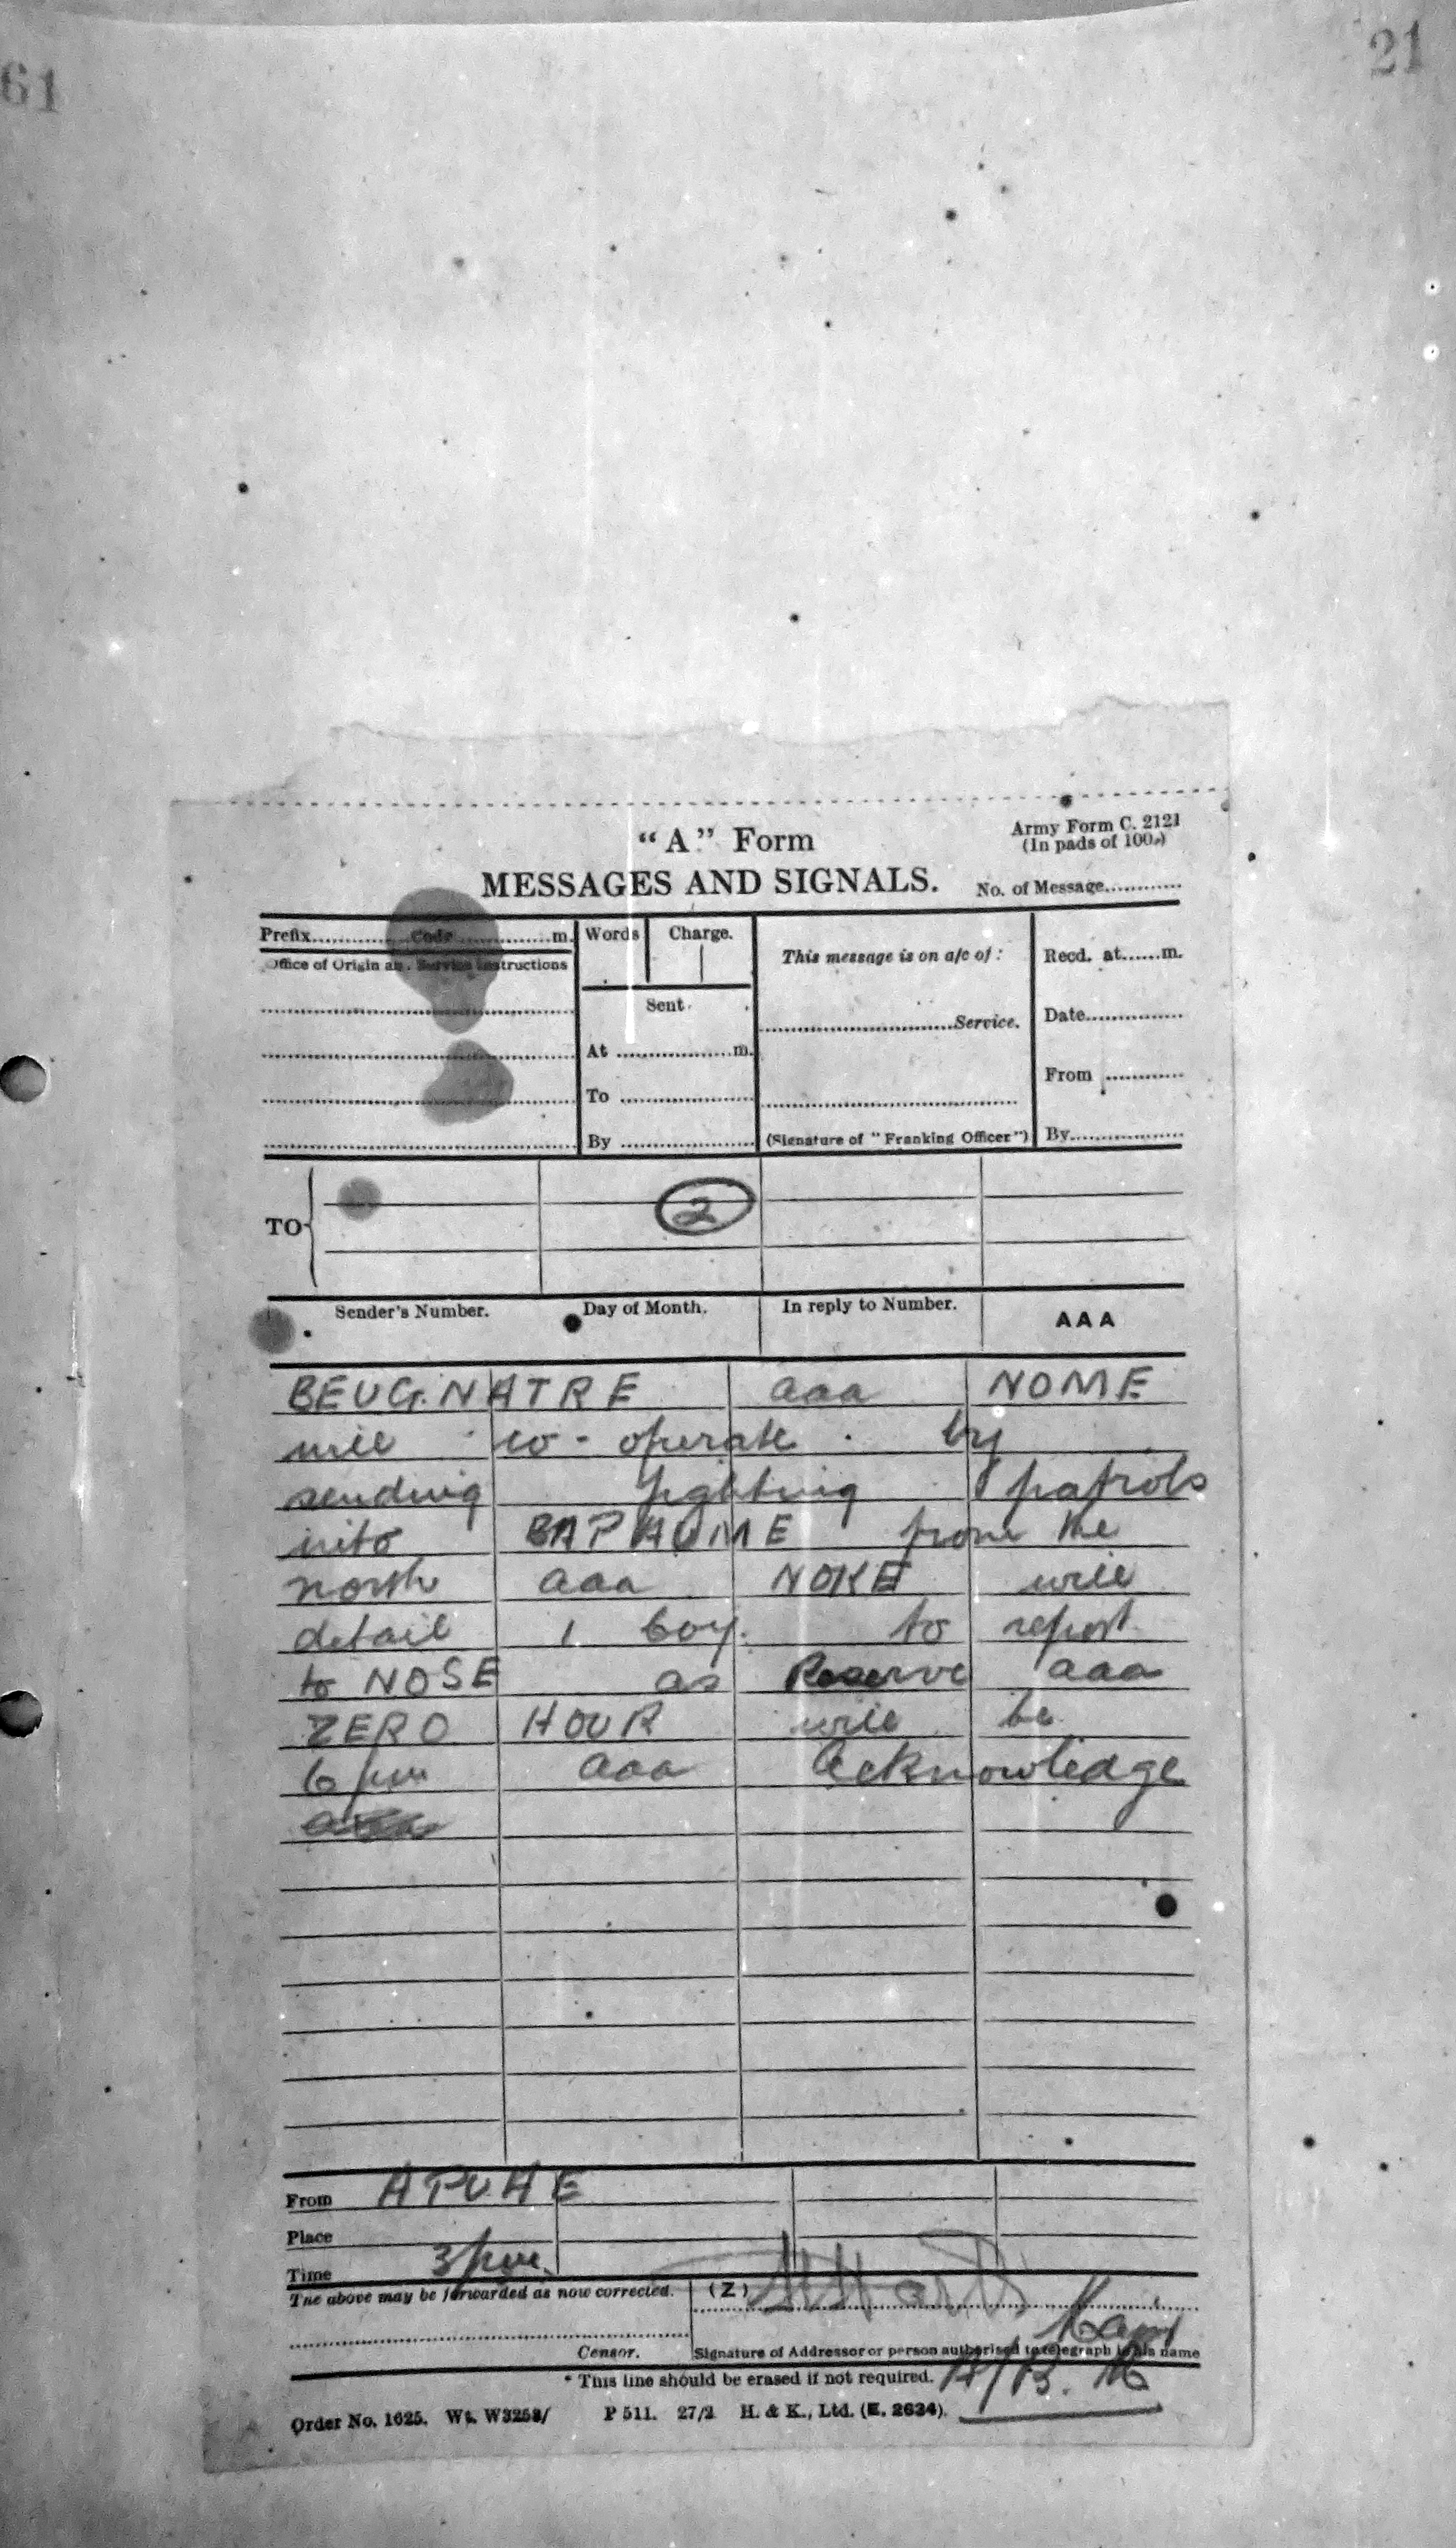 61
21
"A" Form
Army Form C. 2121
(In pads of 100.)
MESSAGES AND SIGNALS.
No. of Message............
Prefix............Code............m.
Words
Charge.
This message is on a/c of :
Recd. at......m.
Office of Origin and Service Instructions
Sent
............Service.
Date............
At ............m.
From ............
To ............
By ............
(Signature of "Franking Officer")
By............
TO
2
Sender's Number.
Day of Month.
In reply to Number.
AAA
BEUGNATRE aaa NOME
will co-operate by
sending fighting patrols
into BAPAUME from the
north aaa NOKE will
detail 1 Coy. to report
to NOSE as Reserve aaa
ZERO HOUR will be
6 pm aaa Acknowledge
From
Place
Time 3 pm.
The above may be forwarded as now corrected.
(Z)
Capt
Censor.
Signature of Addressor or person authorised to telegraph in his name
* This line should be erased if not required.
Order No. 1625. Wt. W3253/ P 511. 27/2 H. & K., Ltd. (E. 2634).